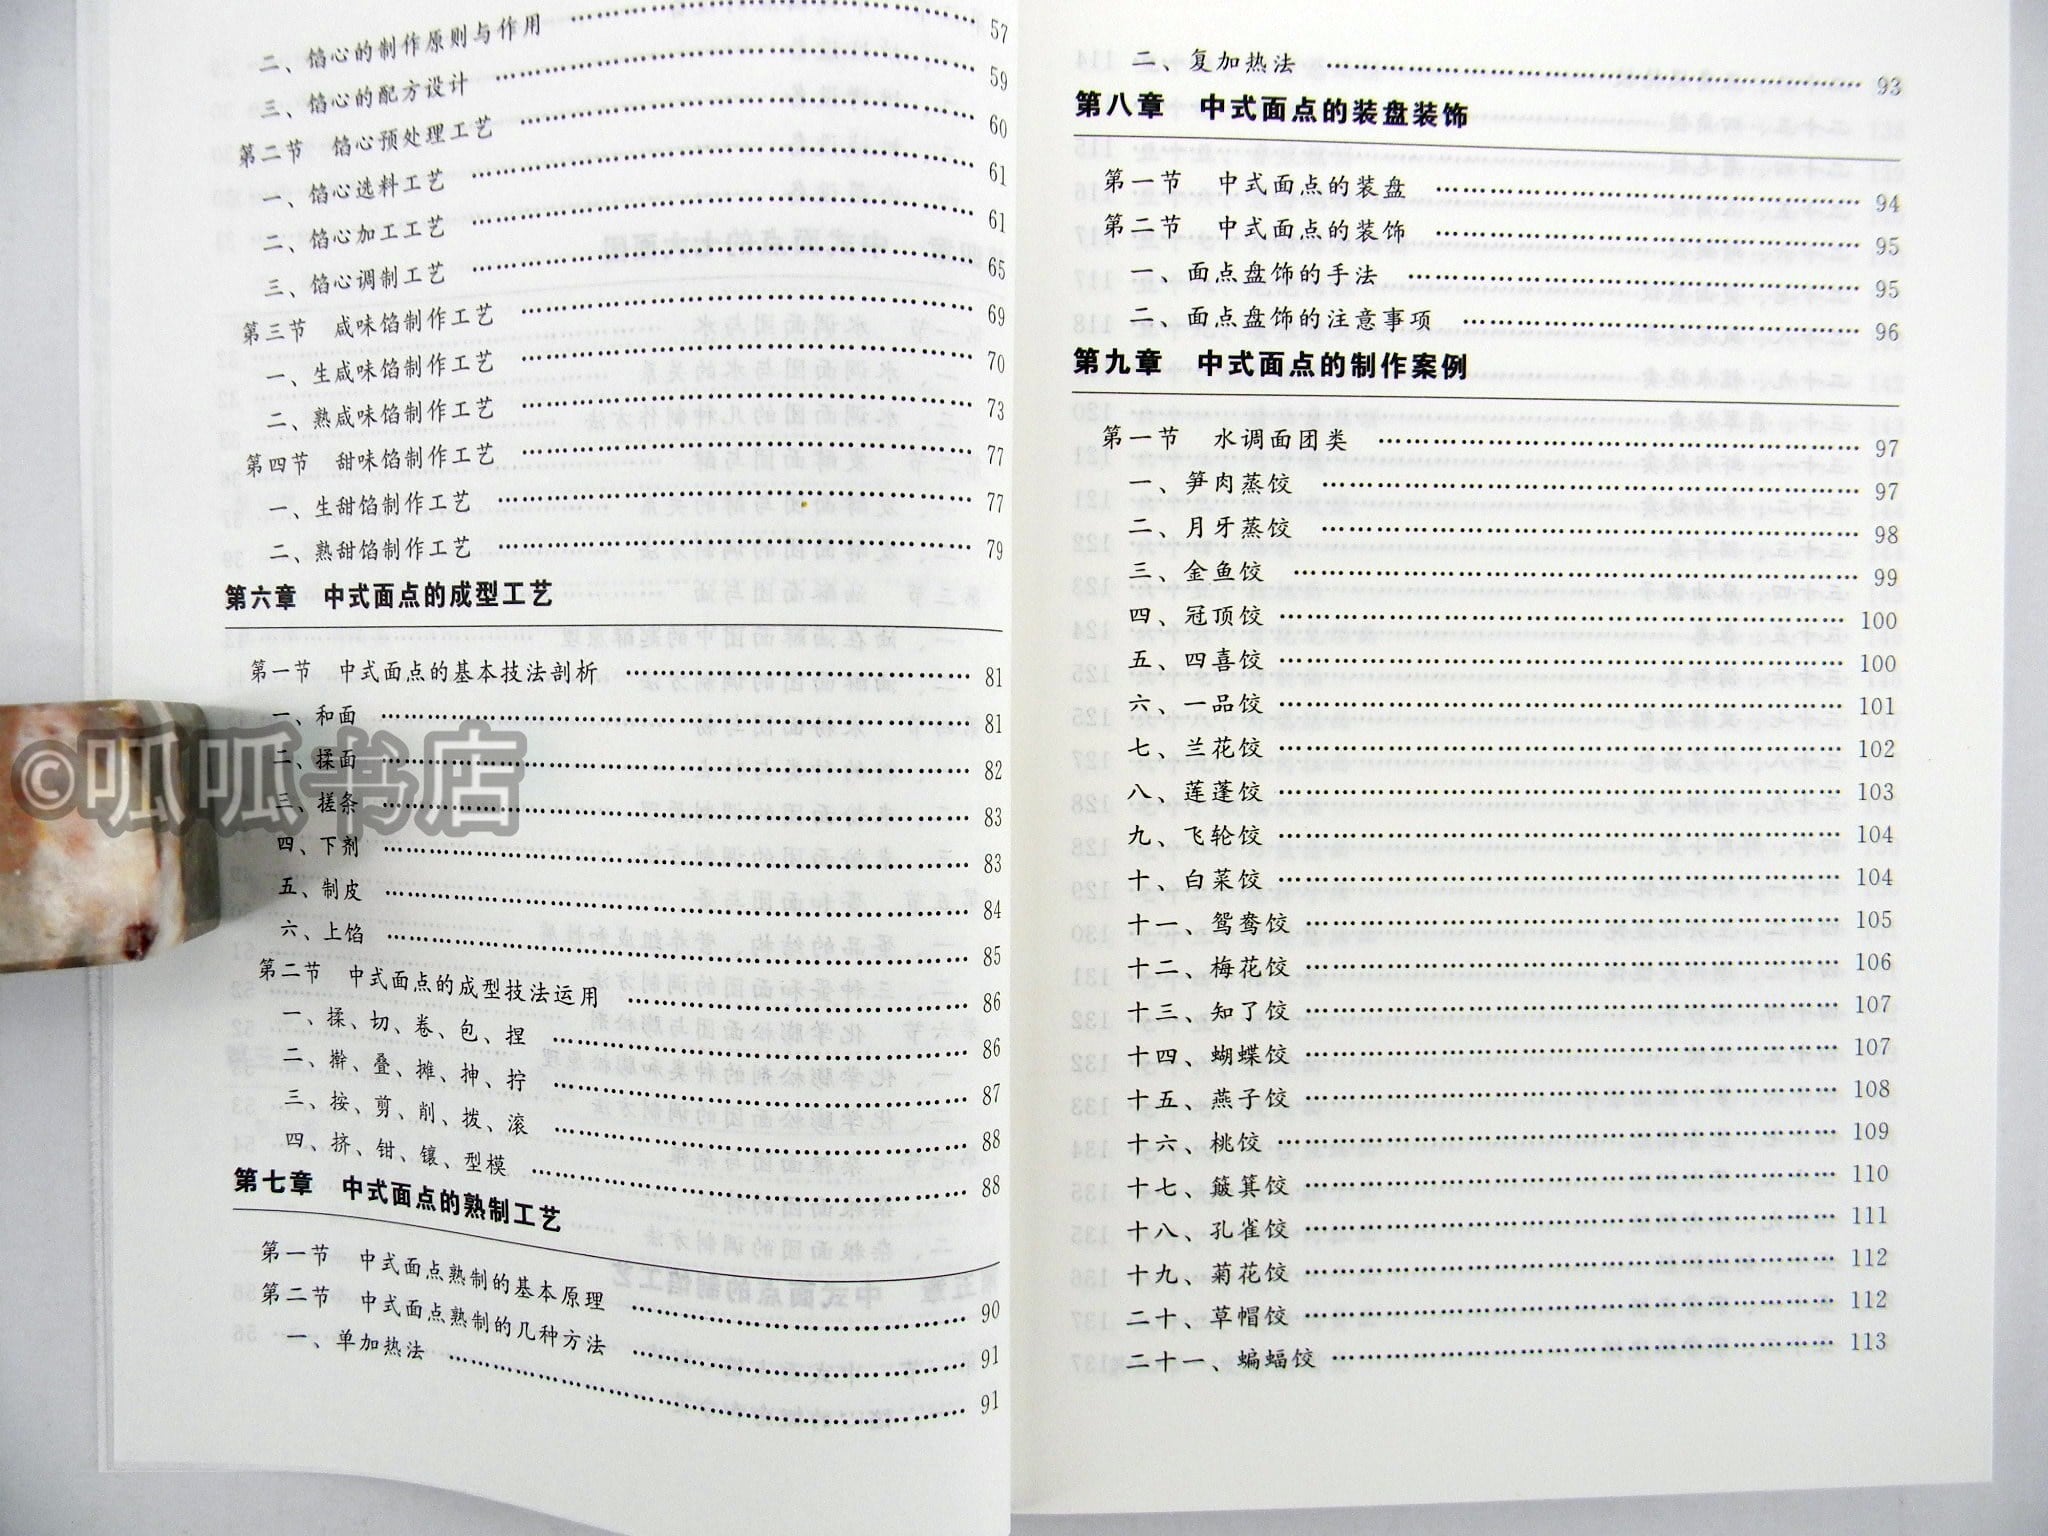 二、馅心的制作原则与作用 …… 57
三、馅心的配方设计 …… 59
第二节 馅心预处理工艺 …… 60
一、馅心选料工艺 …… 61
二、馅心加工工艺 …… 61
三、馅心调制工艺 …… 65
第三节 咸味馅制作工艺 …… 69
一、生咸味馅制作工艺 …… 70
二、熟咸味馅制作工艺 …… 73
第四节 甜味馅制作工艺 …… 77
一、生甜馅制作工艺 …… 77
二、熟甜馅制作工艺 …… 79
第六章 中式面点的成型工艺
第一节 中式面点的基本技法剖析 …… 81
一、和面 …… 81
二、揉面 …… 82
三、搓条 …… 83
四、下剂 …… 83
五、制皮 …… 84
六、上馅 …… 85
第二节 中式面点的成型技法运用 …… 86
一、揉、切、卷、包、捏 …… 86
二、擀、叠、摊、抻、拧 …… 87
三、按、剪、削、拨、滚 …… 88
四、挤、钳、镶、型模 …… 88
第七章 中式面点的熟制工艺
第一节 中式面点熟制的基本原理 …… 90
第二节 中式面点熟制的几种方法 …… 91
一、单加热法 …… 91
©呱呱书店
二、复加热法 …… 93
第八章 中式面点的装盘装饰
第一节 中式面点的装盘 …… 94
第二节 中式面点的装饰 …… 95
一、面点盘饰的手法 …… 95
二、面点盘饰的注意事项 …… 96
第九章 中式面点的制作案例
第一节 水调面团类 …… 97
一、笋肉蒸饺 …… 97
二、月牙蒸饺 …… 98
三、金鱼饺 …… 99
四、冠顶饺 …… 100
五、四喜饺 …… 100
六、一品饺 …… 101
七、兰花饺 …… 102
八、莲蓬饺 …… 103
九、飞轮饺 …… 104
十、白菜饺 …… 104
十一、鸳鸯饺 …… 105
十二、梅花饺 …… 106
十三、知了饺 …… 107
十四、蝴蝶饺 …… 107
十五、燕子饺 …… 108
十六、桃饺 …… 109
十七、簸箕饺 …… 110
十八、孔雀饺 …… 111
十九、菊花饺 …… 112
二十、草帽饺 …… 112
二十一、蝙蝠饺 …… 113